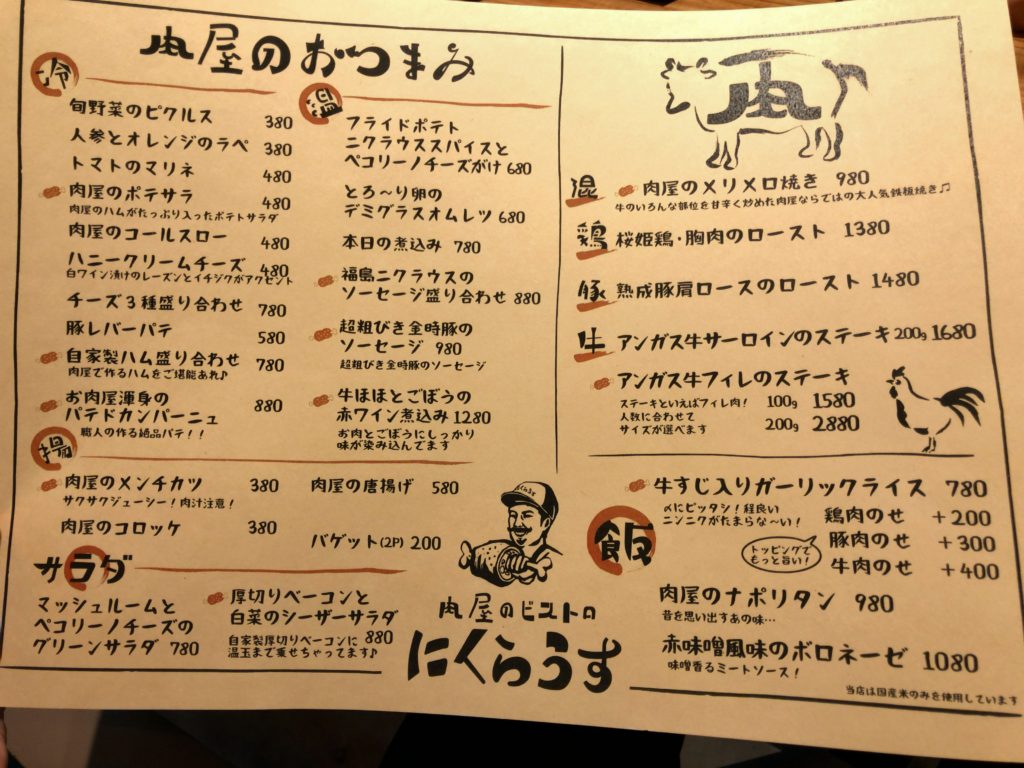 肉屋のおつまみ
冷
旬野菜のピクルス 380
人参とオレンジのラペ 380
トマトのマリネ 480
肉屋のポテサラ 480
肉屋のハムがたっぷり入ったポテトサラダ
肉屋のコールスロー 480
ハニークリームチーズ 480
白ワイン漬けのレーズンとイチジクがアクセント
チーズ3種盛り合わせ 780
豚レバーパテ 580
自家製ハム盛り合わせ 780
肉屋で作るハムをご堪能あれ♪
お肉屋渾身の
パテドカンパーニュ 880
職人の作る絶品パテ!!
温
フライドポテト
ニクラウススパイスと
ペコリーノチーズがけ 680
とろ〜り卵の
デミグラスオムレツ 680
本日の煮込み 780
福島ニクラウスの
ソーセージ盛り合わせ 880
超粗びき金時豚の
ソーセージ 980
超粗びき金時豚のソーセージ
牛ほほとごぼうの
赤ワイン煮込み 1280
お肉とごぼうにしっかり
味が染み込んでます
揚
肉屋のメンチカツ 380
サクサクジューシー!肉汁注意!
肉屋のコロッケ 380
肉屋の唐揚げ 580
バゲット(2P) 200
サラダ
マッシュルームと
ペコリーノチーズの
グリーンサラダ 780
厚切りベーコンと
白菜のシーザーサラダ
880
自家製厚切りベーコンに
温玉まで乗せちゃってます♪
肉屋のビストロ
にくらうす
肉
混 肉屋のメリメロ焼き 980
牛のいろんな部位を甘辛く炒めた肉屋ならではの大人気鉄板焼き♫
鶏 桜姫鶏・胸肉のロースト 1380
豚 熟成豚肩ロースのロースト 1480
牛 アンガス牛サーロインのステーキ 200g 1680
アンガス牛フィレのステーキ
ステーキといえばフィレ肉! 100g 1580
人数に合わせて 200g 2880
サイズが選べます
飯
牛すじ入りガーリックライス 780
〆にピッタシ!程良い
ニンニクがたまらな〜い!
鶏肉のせ +200
豚肉のせ +300
牛肉のせ +400
トッピングで
もっと旨い!
肉屋のナポリタン 980
昔を思い出すあの味…
赤味噌風味のボロネーゼ 1080
味噌香るミートソース!
当店は国産米のみを使用しています